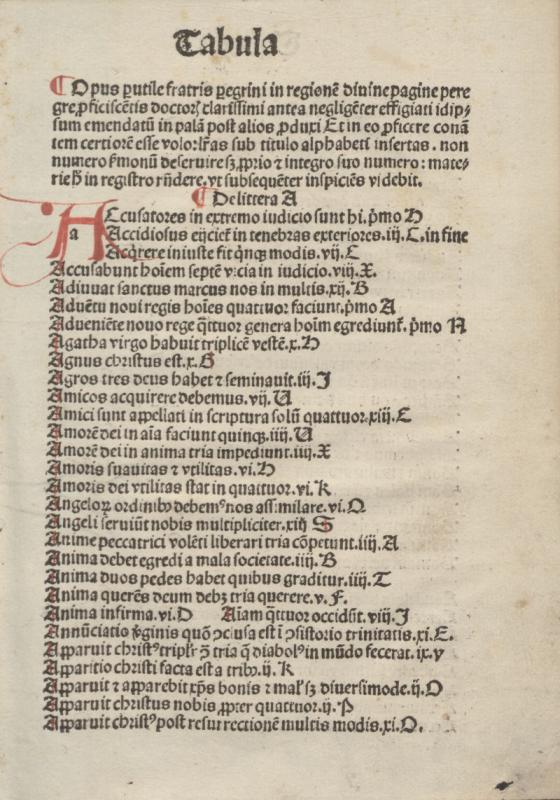 Tabula
Opus ꝑutile fratris ꝑegrini in regionē diuine pagine pere
gre ꝓficiscētis doctoꝝ clarissimi antea negligēter effigiati idip⸗
sum emendatū in palā post alios ꝓduxi Et in eo ꝓficere conā
tem certiorē esse volo lr̄as sub titulo alphabeti insertas. non
numero ẜmonū deseruire sꝫ ꝓprio ⁊ integro suo numero: mate⸗
rieꝗꝫ in registro rūdere. vt subsequēter inspiciēs videbit.
De littera A
Accusatores in extremo iudicio sunt hi. p̄mo H
a Accidiosus eijciet̉ in tenebras exteriores. iij. C. in fine
Acq̄rere iniuste fit q̄nqꝫ modis. vij. C
Accusabunt hoīem septē vicia in iudicio. viij. X.
Adiuuat sanctus marcus nos in multis. xij. B
Aduētu noui regis hoīes quattuor faciunt. p̄mo A
Adueniēte nouo rege q̄ttuor genera hoīm egrediunt̉. p̄mo N
Agatha virgo habuit triplicē vestē. x. H
Agnus christus est. x. G
Agros tres deus habet ⁊ seminauit. iij. J
Amicos acquirere debemus. vij. U
Amici sunt appellati in scriptura solū quattuor. xiij. C
Amorē dei in aīa faciunt quinqꝫ. iiij. U
Amorē dei in anima tria impediunt. iiij. X
Amoris suauitas ⁊ vtilitas. vi. H
Amoris dei vtilitas stat in quattuor. vi. K
Angeloꝝ ordinibꝰ debemꝰ nos assimilare. vi. O
Angeli seruiūt nobis multipliciter. xiij S
Anime peccatrici volēti liberari tria cōpetunt. iiij. A
Anima debet egredi a mala societate. iiij. B
Anima duos pedes habet quibus graditur. iiij. T
Anima querēs deum debꝫ tria querere. v. F.
Anima infirma. vi. D Aīam q̄ttuor occidūt. viij. J
Annūciatio v̄ginis quō ↄclusa est ī ↄsistorio trinitatis. xi. E.
Apparuit christꝰ triplr̄ ꝓpter tria q̄ diabolꝰ in mūdo fecerat. ix. y
Apparitio christi facta est a tribꝰ. ij. K
Apparuit ⁊ apparebit xp̄s bonis ⁊ malꝭ sꝫ diuersimode. ij. O
Apparuit christus nobis ꝓpter quattuor. ij. P
Apparuit christꝰ post resurrectionē multis modis. xi. O.